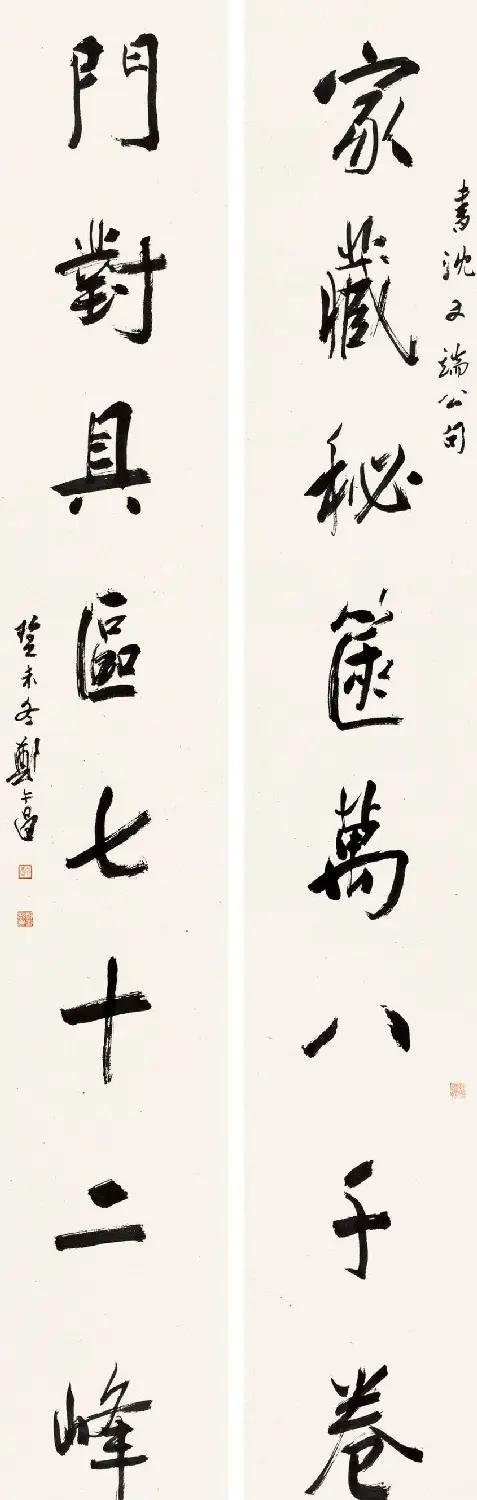 書沈文端公句
家藏秘篋萬八千卷
門對具區七十二峰
癸未冬鄭